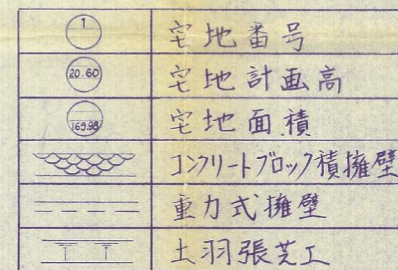 1 宅地番号
20.60 宅地計画高
169.98 宅地面積
コンクリートブロック積擁壁
重力式擁壁
土羽張芝工